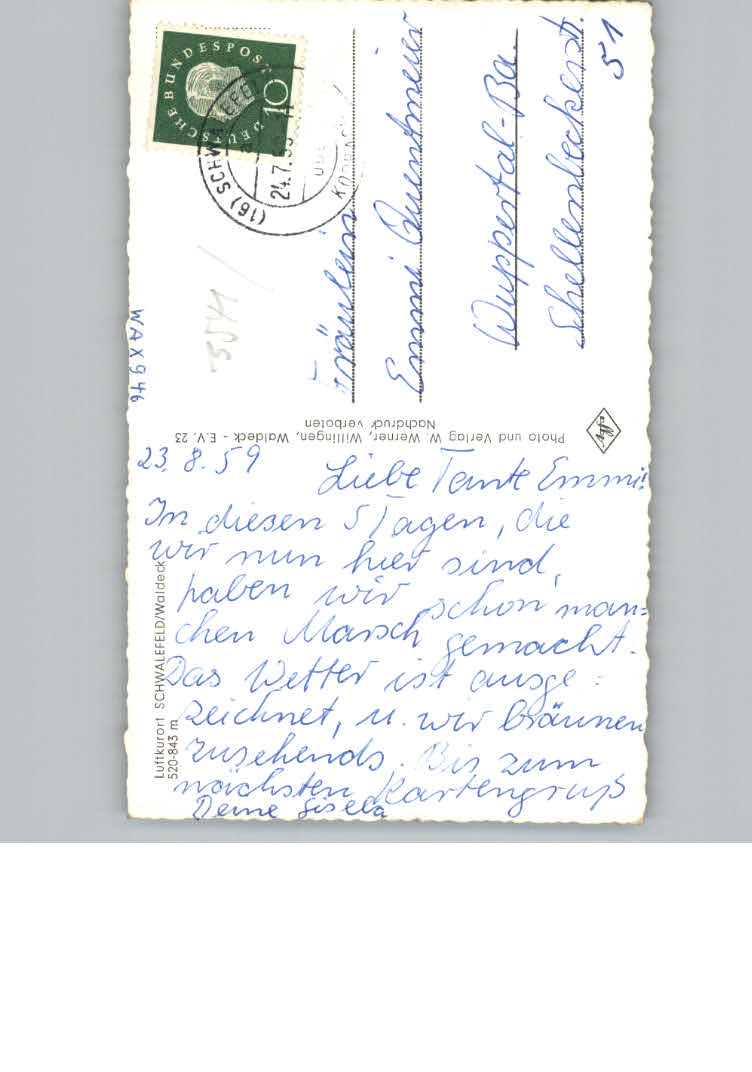 DEUTSCHE BUNDESPOST
10
(16) SCHWALEFELD
24.7.59
Fräulein
Emmi Quentmeier
Wuppertal-Ba.
Schellenbeckerstr.
51
3541
WAX946
Photo und Verlag W. Werner, Willingen, Waldeck - E.V. 23
Nachdruck verboten
Luftkurort SCHWALEFELD/Waldeck
520-843 m
23. 8. 59
Liebe Tante Emmi!
In diesen 5 Tagen, die
wir nun hier sind,
haben wir schon man=
chen Marsch gemacht.
Das Wetter ist ausge=
zeichnet, u. wir bräunen
zusehends. Bis zum
nächsten Kartengruß
Deine Gisela